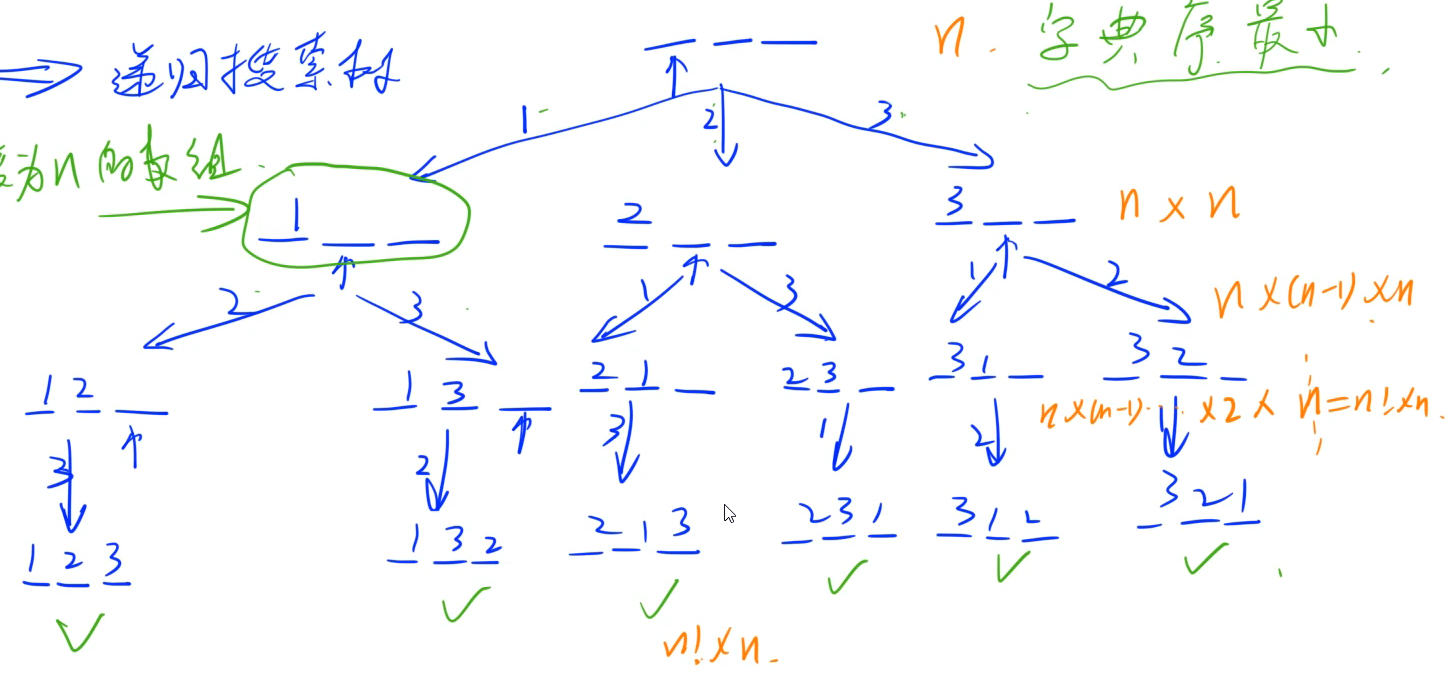 ⇒ 递归搜索树
n. 字典序最小.
1 2 3
为n的数组.
1 _ _
2 _ _
3 _ _
n × n
2 3
1 3
1 2
n × (n-1) × n
1 2 _
1 3 _
2 1 _
2 3 _
3 1 _
3 2 _
n×(n-1)...×2× n=n!×n.
3 2 3 1 2
1 2 3
1 3 2
2 1 3
2 3 1
3 1 2
3 2 1
n!×n.